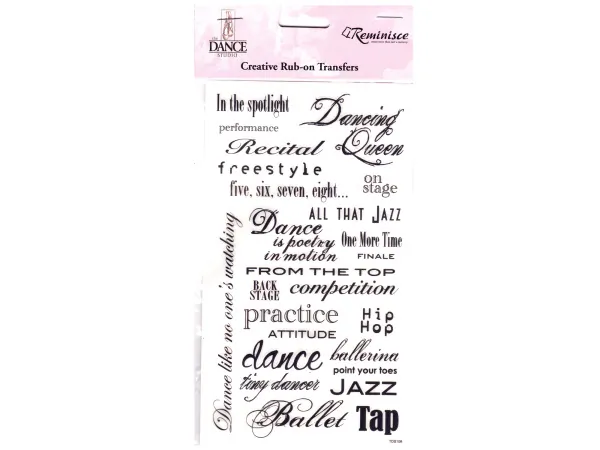 THE
DANCE
STUDIO
Reminisce
Creative Rub-on Transfers
In the spotlight
Dancing
Queen
performance
Recital
freestyle
on
stage
five, six, seven, eight...
ALL THAT JAZZ
Dance
is poetry
in motion
One More Time
FINALE
FROM THE TOP
BACK
STAGE
competition
practice
Hip
Hop
ATTITUDE
dance
ballerina
point your toes
tiny dancer
JAZZ
Ballet
Tap
Dance like no one's watching